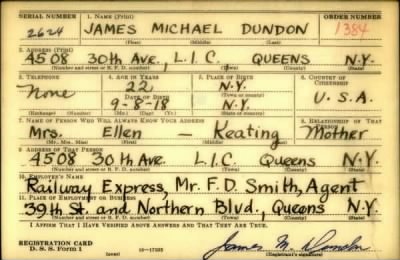 SERIAL NUMBER 1. NAME (Print) ORDER NUMBER
2624 JAMES MICHAEL DUNDON 1384
(First) (Middle) (Last)
2. ADDRESS (Print)
4508 30th AVE., L.I.C. QUEENS N.Y.
(Number and street or R. F. D. number) (Town) (County) (State)
3. TELEPHONE 4. AGE IN YEARS 5. PLACE OF BIRTH 6. COUNTRY OF CITIZENSHIP
None 22 N.Y.
DATE OF BIRTH (Town or county)
9-8-18 N.Y. U.S.A.
(Exchange) (Number) (Mo.) (Day) (Yr.) (State or country)
7. NAME OF PERSON WHO WILL ALWAYS KNOW YOUR ADDRESS 8. RELATIONSHIP OF THAT PERSON
Mrs. Ellen — Keating Mother
(Mr., Mrs., Miss) (First) (Middle) (Last)
9. ADDRESS OF THAT PERSON
4508 30th Ave. L.I.C. Queens N.Y.
(Number and street or R. F. D. number) (Town) (County) (State)
10. EMPLOYER'S NAME
Railway Express, Mr. F.D. Smith, Agent
11. PLACE OF EMPLOYMENT OR BUSINESS
39th St. and Northern Blvd., Queens N.Y.
(Number and street or R. F. D. number) (Town) (County) (State)
I AFFIRM THAT I HAVE VERIFIED ABOVE ANSWERS AND THAT THEY ARE TRUE.
REGISTRATION CARD
D. S. S. Form 1 (over) 16—17105 James M. Dundon
(Registrant's signature)